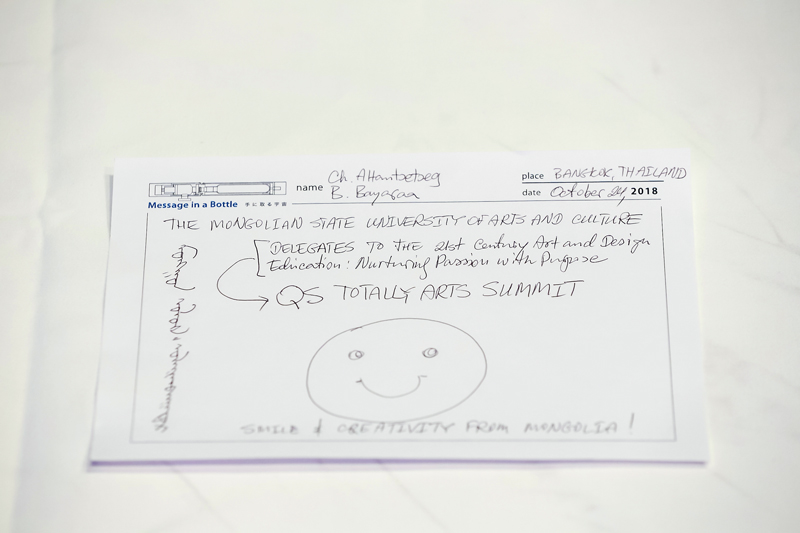 Message in a Bottle 手に取る宇宙
name Ch. Altantsetseg
B. Bayaraa
place BANGKOK, THAILAND
date October 24, 2018
THE MONGOLIAN STATE UNIVERSITY OF ARTS AND CULTURE
DELEGATES TO THE 21st Century Art and Design
Education: Nurturing Passion with Purpose
QS TOTALLY ARTS SUMMIT
SMILE & CREATIVITY FROM MONGOLIA!